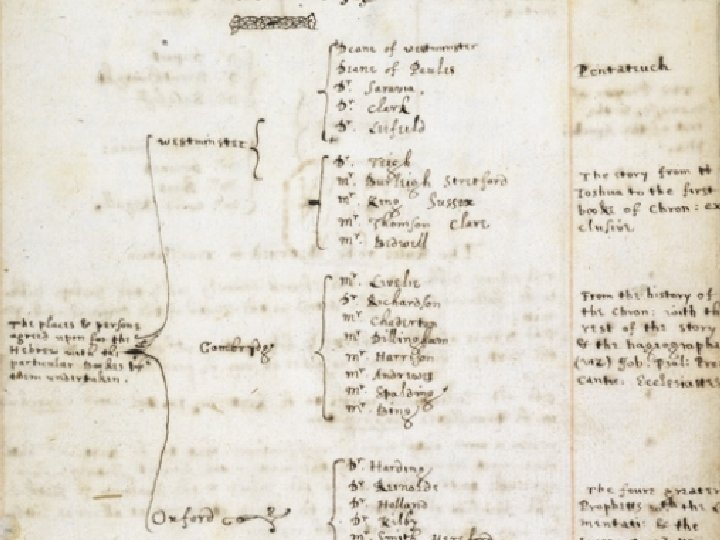 Deane of westminster
Deane of Paules
Dr. Saravia.
Dr. Clark
Dr. Leifield
Pentateuch
westminster
Dr. Teigh
Mr. Burleigh Stretford
Mr. King Sussex
Mr. Thomson Clare
Mr. Bedwell
The story from
Joshua to the first
booke of Chron: ex
clusive
Mr. Livelie
Dr. Richardson
Mr. Chaderton
Mr. Dillingham
Mr. Harrison
Mr. Andrewes
Mr. Spalding
Mr. Bing
Cambridg
From the history of
the Chron: with th
rest of the story
& the hagiographa
(viz) Job: Psal: Pro
Cantic: Ecclesiastes
The places & persons
agreed upon for the
Hebrew with the
particular bookes by
them undertaken.
Oxford
Dr. Harding
Dr. Reinolds
Dr. Holland
Dr. Kilby
Mr. Smith Hereford
The foure greater
Prophetts with the
mentatiō & the